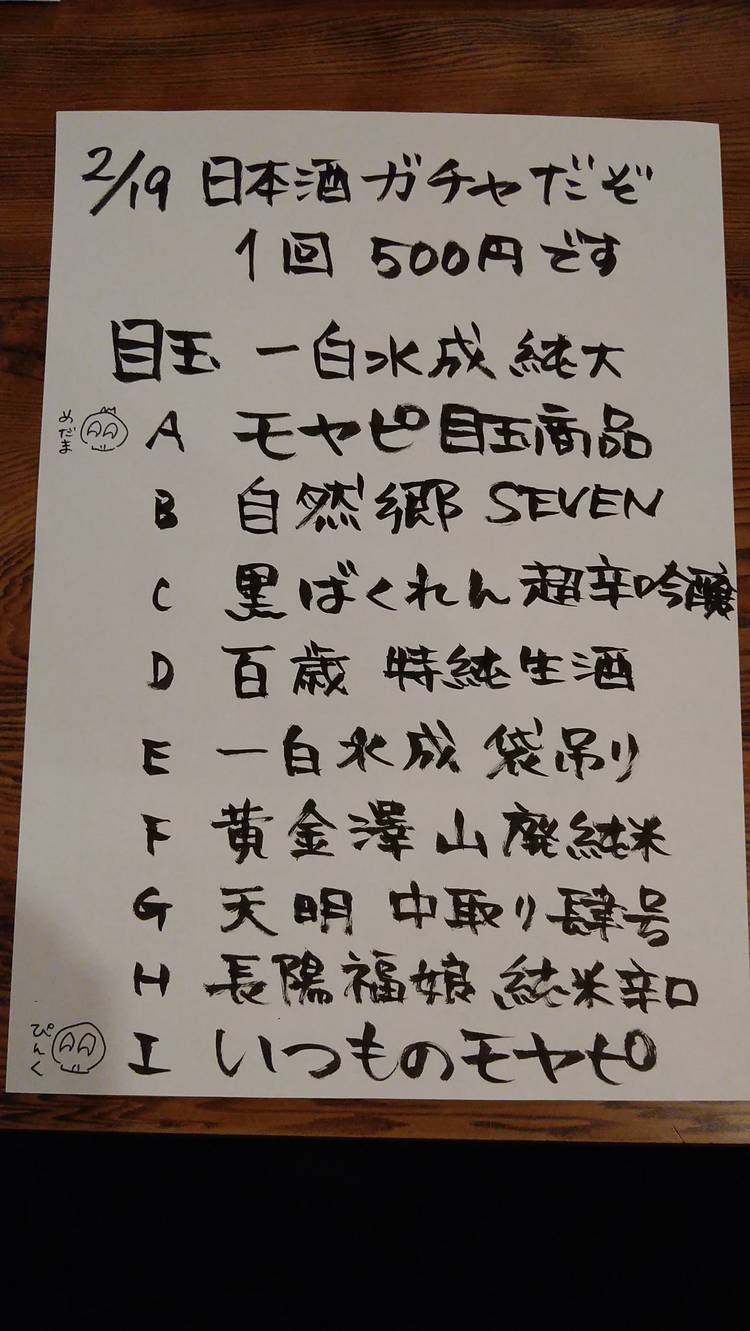 2/19 日本酒ガチャだぞ
1回 500円です
目玉 一白水成 純大
めだま
A モヤピ目玉商品
B 自然郷 SEVEN
C 黒ばくれん 超辛口吟醸
D 百歳 特純生酒
E 一白水成 袋吊り
F 黄金澤 山廃純米
G 天明 中取り肆号
H 長陽福娘 純米辛口
ぴんく
I いつものモヤピ